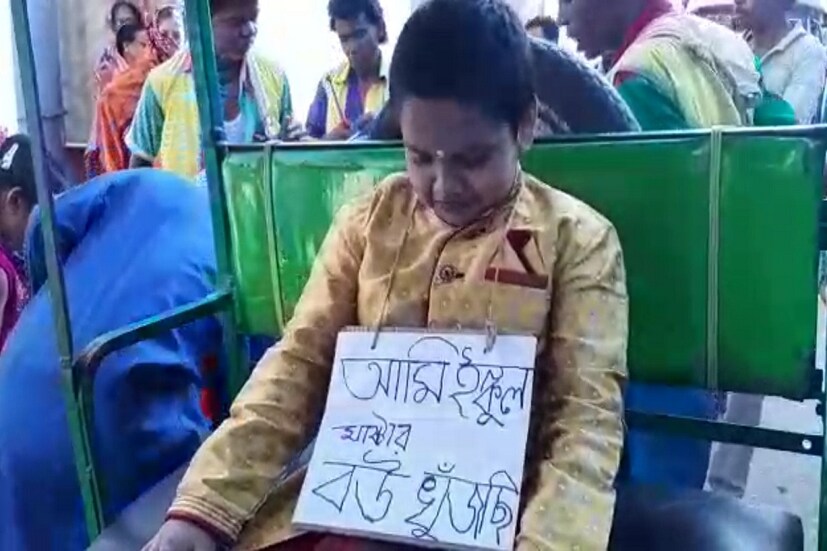 আমি ইস্কুল
মাষ্টার
বউ খুঁজছি